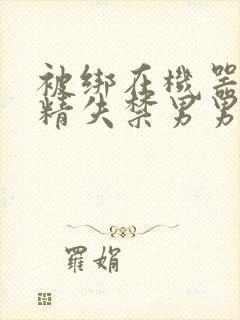 被绑在機器
精失禁男男
羅娟